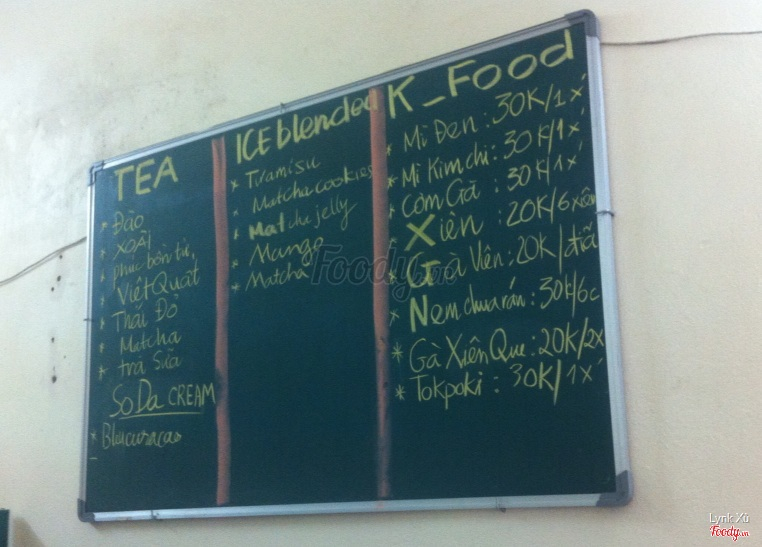 TEA
* Đào
* XOÀI
* phúc bồn tử,
* Việt Quất
* Thái Đỏ
* Matcha
* trà Sữa
SoDa CREAM
* Bluecuracao
ICE blended
* Tiramisu
* Matcha cookies
* Matcha jelly
* Mango
* Matcha
K_Food
* Mì Đen : 30K/1x
* Mì Kim chi : 30K/1x
* Cơm Gà : 30K/1x
* Xiên : 20K/6 xiên
* Gà Viên : 20K/đĩa
* Nem chua rán : 30K/6c
* Gà Xiên Que : 20K/2x
* Tokpoki : 30K/1x
Foody.vn
Lynk Xù
Foody.vn